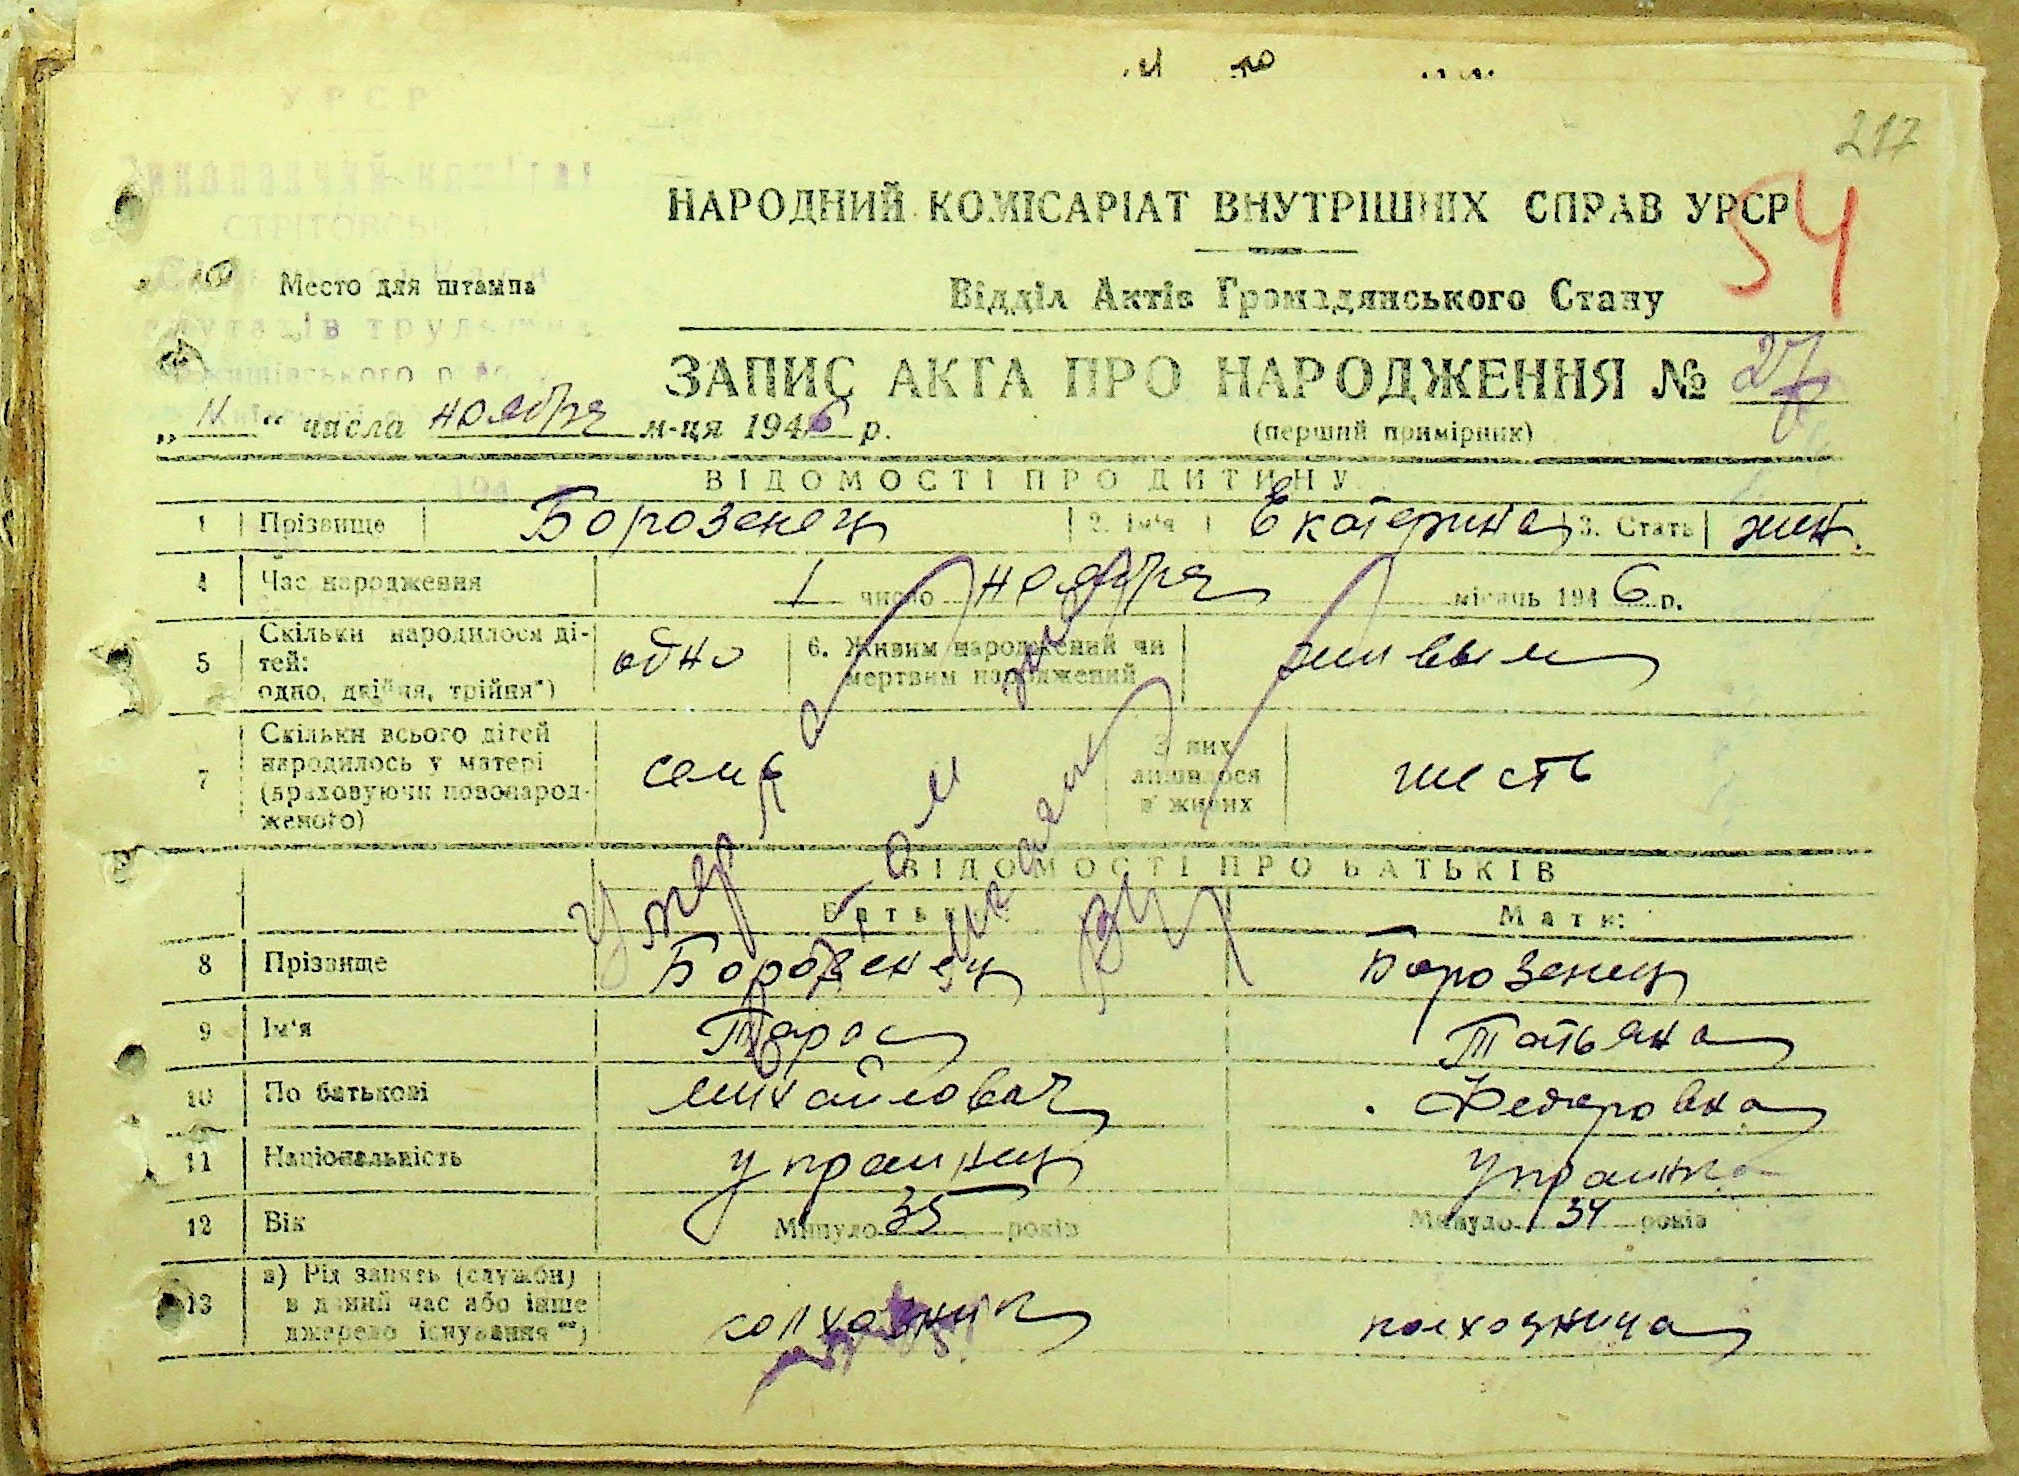 217
НАРОДНИЙ КОМІСАРІАТ ВНУТРІШНІХ СПРАВ УРСР
54
Место для штампа
Відділ Актів Громадянського Стану
ЗАПИС АКТА ПРО НАРОДЖЕННЯ № 27
„ 11 “ числа ноября м-ця 1946 р. (перший примірник)
ВІДОМОСТІ ПРО ДИТИНУ
1 Прізвище Борозенец 2. Ім'я Екатерина 3. Стать жен.
4 Час народження 1 число ноября місяць 1946 р.
5 Скільки народилося ді-
тей:
одно, двійня, трійня*) одно 6. Живим народжений чи
мертвим народжений живым
7 Скільки всього дітей
народилось у матері
(враховуючи новонарод-
женого) семь З них
лишилося
в живих шесть
Умер
ВІДОМОСТІ ПРО БАТЬКІВ
Батько: Мати:
8 Прізвище Борозенец Борозенец
9 Ім'я Тарас Татьяна
10 По батькові Михайлович Федоровна
11 Національність украинец украинка
12 Вік Минуло 35 років Минуло 34 років
13 а) Рід занять (служби)
в даний час або інше
джерело існування**) колхозник колхозница